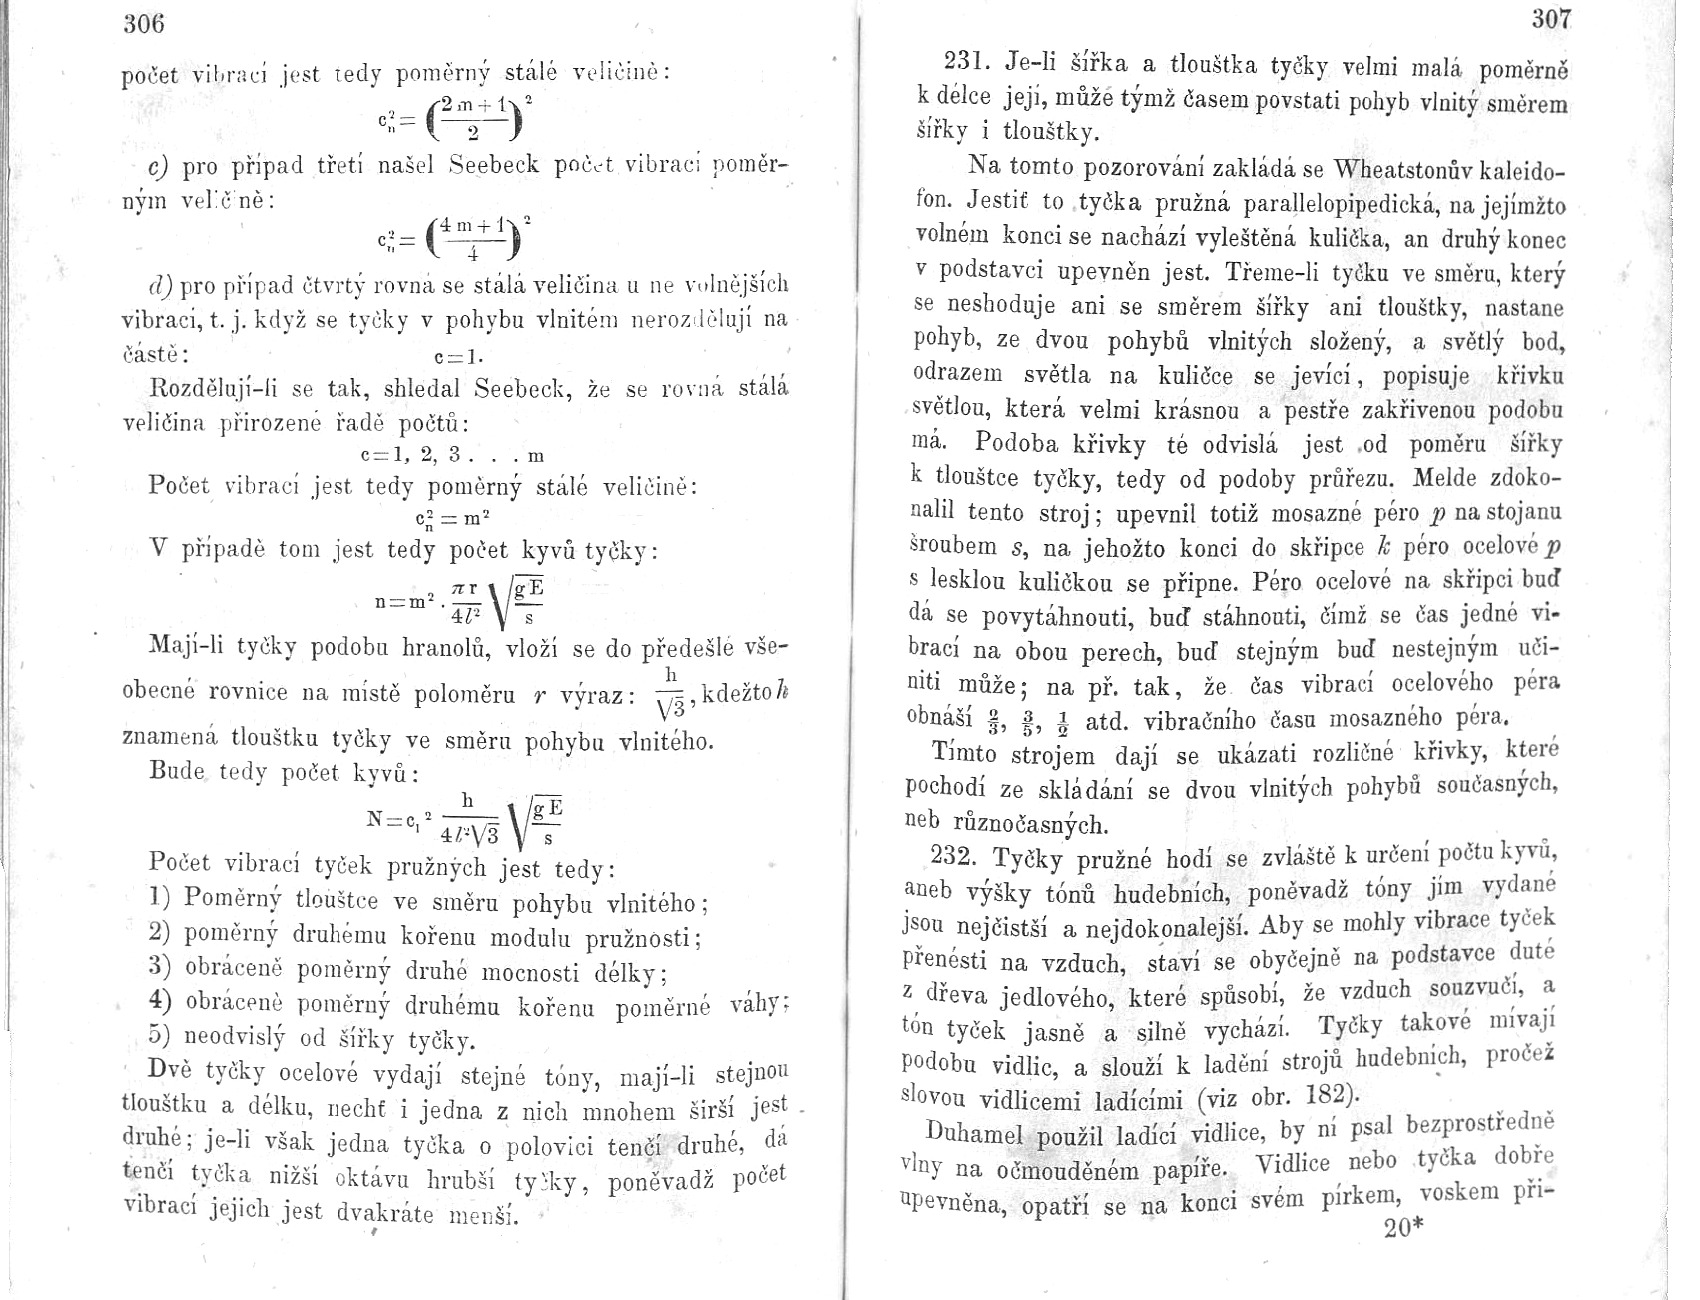 306
počet vibrací jest tedy poměrný stálé veličině:
c²ₙ = ((2m + 1)/2)²
c) pro případ třetí našel Seebeck počet vibrací poměr-
ným veličině:
c²ₙ = ((4m + 1)/4)²
d) pro případ čtvrtý rovná se stálá veličina u ne volnějších
vibrací, t. j. když se tyčky v pohybu vlnitém nerozdělují na
částě: c=1.
Rozdělují-li se tak, shledal Seebeck, že se rovná stálá
veličina přirozené řadě počtů:
c=1, 2, 3 . . . m
Počet vibrací jest tedy poměrný stálé veličině:
c²ₙ = m²
V případě tom jest tedy počet kyvů tyčky:
n=m² . πr/4l² √(gE/s)
Mají-li tyčky podobu hranolů, vloží se do předešlé vše-
obecné rovnice na místě poloměru r výraz: h/√3, kdežto h
znamená tlouštku tyčky ve směru pohybu vlnitého.
Bude tedy počet kyvů:
N=c₁² h/4l²√3 √(gE/s)
Počet vibrací tyček pružných jest tedy:
1) Poměrný tlouštce ve směru pohybu vlnitého;
2) poměrný druhému kořenu modulu pružnosti;
3) obráceně poměrný druhé mocnosti délky;
4) obráceně poměrný druhému kořenu poměrné váhy;
5) neodvislý od šířky tyčky.
Dvě tyčky ocelové vydají stejné tóny, mají-li stejnou
tlouštku a délku, nechť i jedna z nich mnohem širší jest
druhé; je-li však jedna tyčka o polovici tenčí druhé, dá
tenčí tyčka nižší oktávu hrubší tyčky, poněvadž počet
vibrací jejich jest dvakráte menší.
307
231. Je-li šířka a tlouštka tyčky velmi malá poměrně
k délce její, může týmž časem povstati pohyb vlnitý směrem
šířky i tlouštky.
Na tomto pozorování zakládá se Wheatstonův kaleido-
fon. Jestiť to tyčka pružná parallelopipedická, na jejímžto
volném konci se nachází vyleštěná kulička, an druhý konec
v podstavci upevněn jest. Třeme-li tyčku ve směru, který
se neshoduje ani se směrem šířky ani tlouštky, nastane
pohyb, ze dvou pohybů vlnitých složený, a světlý bod,
odrazem světla na kuličce se jevící, popisuje křivku
světlou, která velmi krásnou a pestře zakřivenou podobu
má. Podoba křivky té odvislá jest od poměru šířky
k tlouštce tyčky, tedy od podoby průřezu. Melde zdoko-
nalil tento stroj; upevnil totiž mosazné péro p na stojanu
šroubem s, na jehožto konci do skřipce k péro ocelové p
s lesklou kuličkou se připne. Péro ocelové na skřipci buď
dá se povytáhnouti, buď stáhnouti, čímž se čas jedné vi-
brací na obou perech, buď stejným buď nestejným uči-
niti může; na př. tak, že čas vibrací ocelového péra
obnáší ⅔, ⅗, ½ atd. vibračního času mosazného péra.
Tímto strojem dají se ukázati rozličné křivky, které
pochodí ze skládání se dvou vlnitých pohybů současných,
neb různočasných.
232. Tyčky pružné hodí se zvláště k určení počtu kyvů,
aneb výšky tónů hudebních, poněvadž tóny jím vydané
jsou nejčistší a nejdokonalejší. Aby se mohly vibrace tyček
přenésti na vzduch, staví se obyčejně na podstavce duté
z dřeva jedlového, které spůsobí, že vzduch souzvučí, a
tón tyček jasně a silně vychází. Tyčky takové mívají
podobu vidlic, a slouží k ladění strojů hudebních, pročež
slovou vidlicemi ladícími (viz obr. 182).
Duhamel použil ladící vidlice, by ní psal bezprostředně
vlny na očmouděném papíře. Vidlice nebo tyčka dobře
upevněna, opatří se na konci svém pírkem, voskem při-
20*